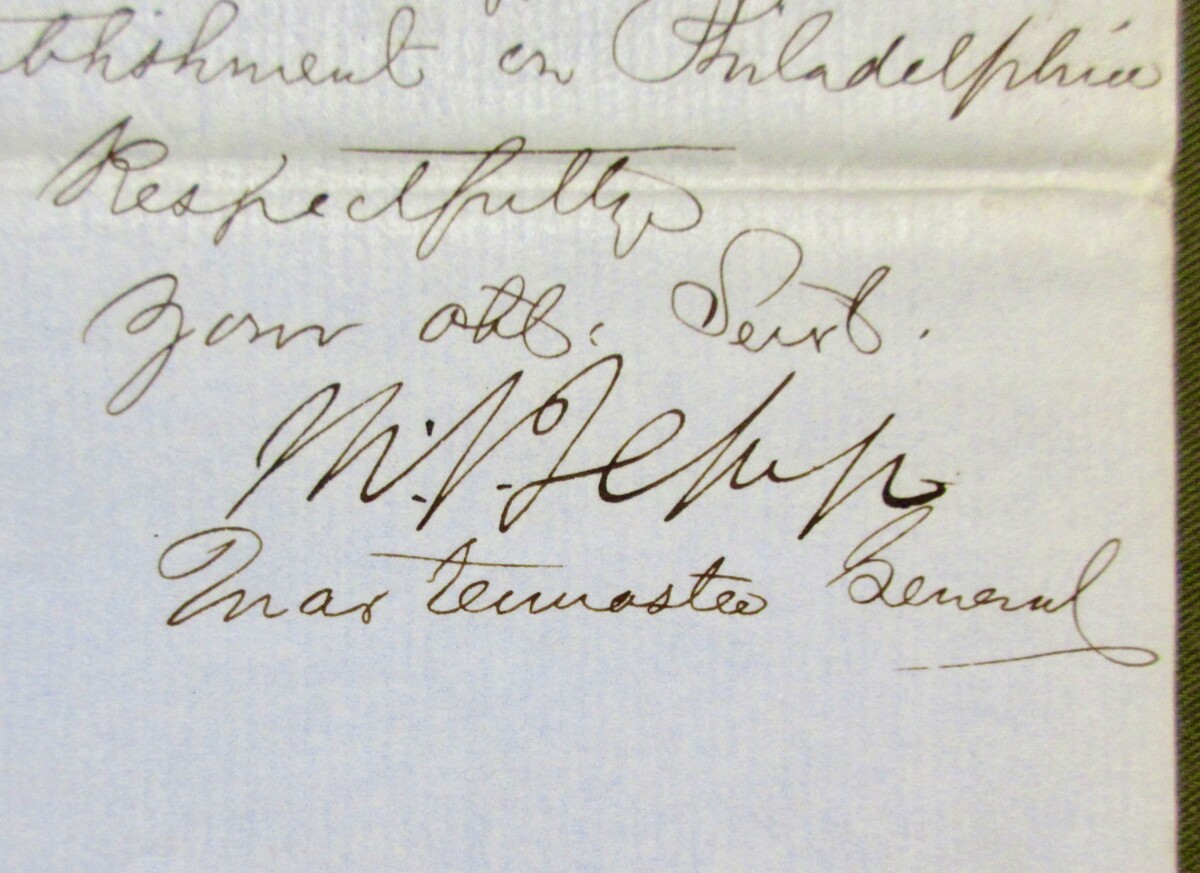 tblishment in Philadelphia
Respectfully
Your obt. Servt.
M. S. Jesup
Quartermaster General